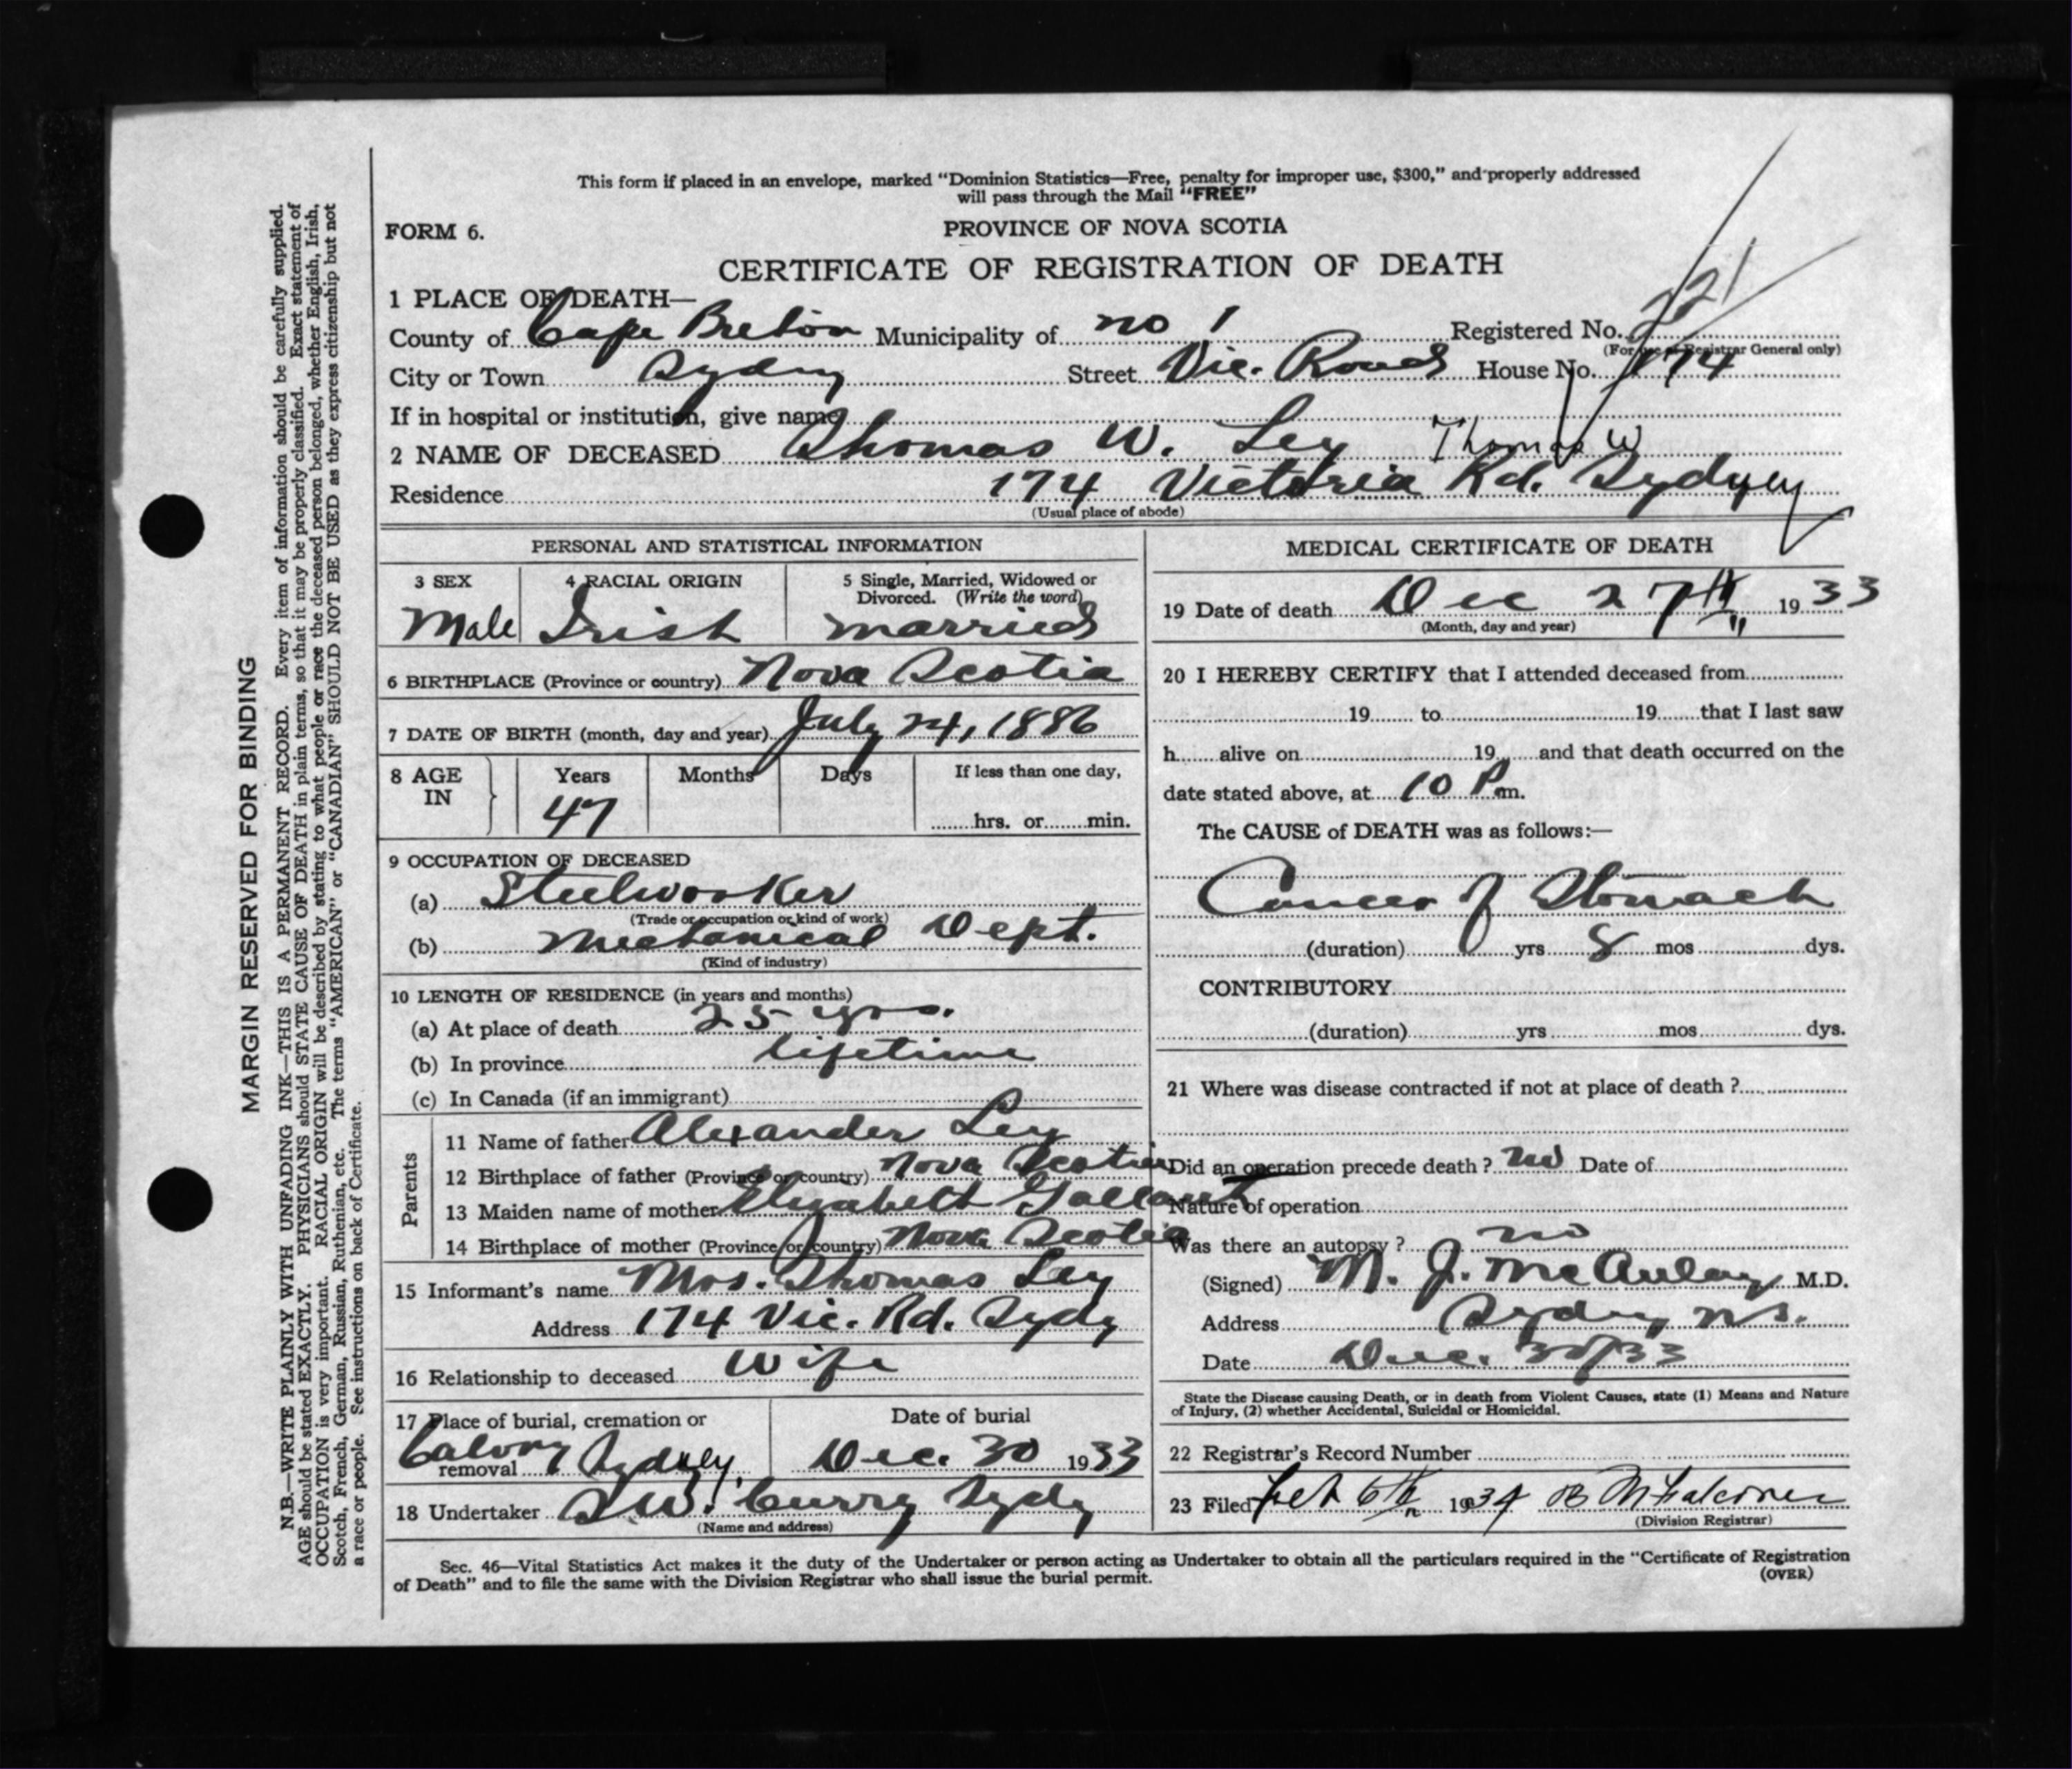 This form if placed in an envelope, marked “Dominion Statistics—Free, penalty for improper use, $300,” and properly addressed
will pass through the Mail “FREE”
FORM 6.
PROVINCE OF NOVA SCOTIA
CERTIFICATE OF REGISTRATION OF DEATH
1 PLACE OF DEATH—
County of Cape Breton Municipality of no 1 Registered No. 221
(For use of Registrar General only)
City or Town Sydney Street Vic. Road House No. 174
If in hospital or institution, give name
2 NAME OF DECEASED Thomas W. Ley Thomas W
Residence 174 Victoria Rd. Sydney
(Usual place of abode)
PERSONAL AND STATISTICAL INFORMATION
3 SEX 4 RACIAL ORIGIN 5 Single, Married, Widowed or
Divorced. (Write the word)
Male Irish married
6 BIRTHPLACE (Province or country) Nova Scotia
7 DATE OF BIRTH (month, day and year) July 24, 1886
8 AGE IN Years Months Days If less than one day,
47 hrs. or min.
9 OCCUPATION OF DECEASED
(a) Steelworker
(Trade or occupation or kind of work)
(b) Mechanical Dept.
(Kind of industry)
10 LENGTH OF RESIDENCE (in years and months)
(a) At place of death 25 yrs.
(b) In province lifetime
(c) In Canada (if an immigrant)
Parents
11 Name of father Alexander Ley
12 Birthplace of father (Province or country) Nova Scotia
13 Maiden name of mother Elizabeth Gallant
14 Birthplace of mother (Province or country) Nova Scotia
15 Informant's name Mrs. Thomas Ley
Address 174 Vic. Rd. Sydy
16 Relationship to deceased Wife
17 Place of burial, cremation or Date of burial
removal Calvary Sydney, Dec. 30 1933
18 Undertaker S.W. Curry Sydy
(Name and address)
MEDICAL CERTIFICATE OF DEATH
19 Date of death Dec 27th 1933
(Month, day and year)
20 I HEREBY CERTIFY that I attended deceased from
19 to 19 that I last saw
h alive on 19 and that death occurred on the
date stated above, at 10 P.m.
The CAUSE of DEATH was as follows:—
Cancer of Stomach
(duration) yrs 8 mos dys.
CONTRIBUTORY
(duration) yrs mos dys.
21 Where was disease contracted if not at place of death ?
Did an operation precede death ? no Date of
Nature of operation
Was there an autopsy ? no
(Signed) M. J. McAulay M.D.
Address Sydney N.S.
Date Dec. 30/33
State the Disease causing Death, or in death from Violent Causes, state (1) Means and Nature
of Injury, (2) whether Accidental, Suicidal or Homicidal.
22 Registrar's Record Number
23 Filed Feb 6th 1934 McFalconer
(Division Registrar)
Sec. 46—Vital Statistics Act makes it the duty of the Undertaker or person acting as Undertaker to obtain all the particulars required in the “Certificate of Registration
of Death” and to file the same with the Division Registrar who shall issue the burial permit.
(OVER)
MARGIN RESERVED FOR BINDING
N.B.—WRITE PLAINLY WITH UNFADING INK—THIS IS A PERMANENT RECORD. Every item of information should be carefully supplied.
AGE should be stated EXACTLY. PHYSICIANS should STATE CAUSE OF DEATH in plain terms, so that it may be properly classified. Exact statement of
OCCUPATION is very important. RACIAL ORIGIN will be described by stating to what people or race the deceased person belonged, whether English, Irish,
Scotch, French, German, Russian, Ruthenian, etc. The terms “AMERICAN” or “CANADIAN” SHOULD NOT BE USED as they express citizenship but not
a race or people. See instructions on back of Certificate.